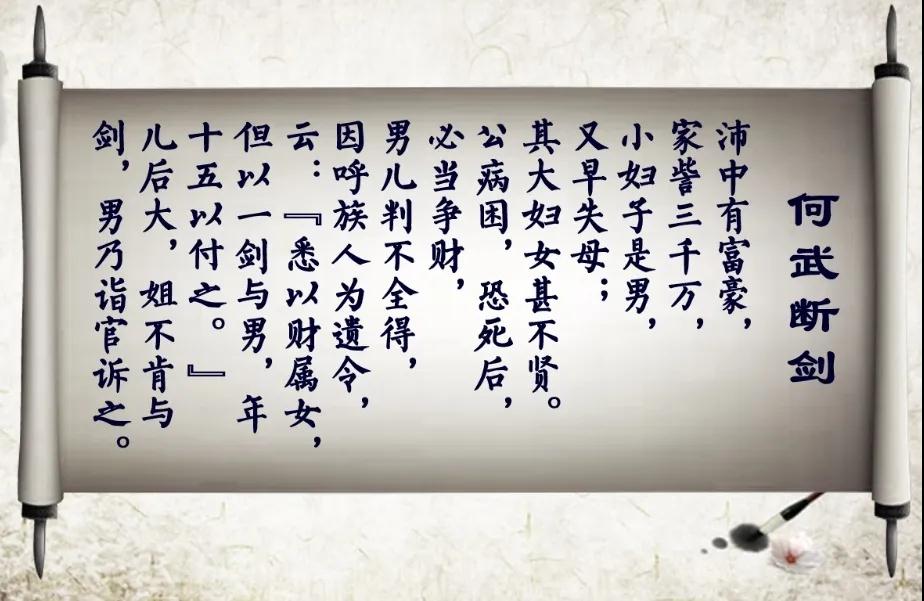 何武断剑
沛中有富豪，
家訾三千万，
小妇子是男，
又早失母；
其大妇女甚不贤。
公病困，恐死后，
必当争财，
男儿判不全得，
因呼族人为遗令，
云：『悉以财属女，
但以一剑与男，年
十五以付之。』
儿后大，姐不肯与
剑，男乃诣官诉之。